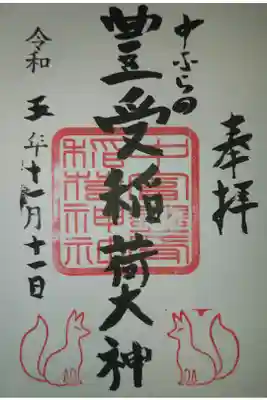 奉拝
中ふらの
豊受稲荷大神
令和五年十一月十一日